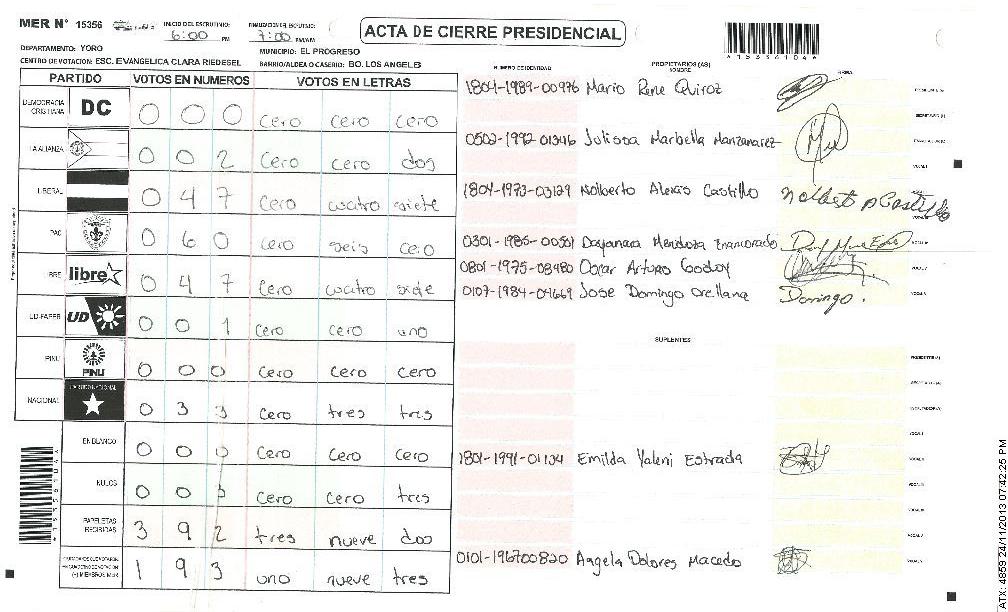 MER N° 15356 INICIO DEL ESCRUTINIO: 6:00 PM FINALIZACION DEL ESCRUTINIO: 7:00 PM/AM ACTA DE CIERRE PRESIDENCIAL
DEPARTAMENTO: YORO MUNICIPIO: EL PROGRESO
CENTRO DE VOTACION: ESC. EVANGELICA CLARA RIEDESEL BARRIO/ALDEA O CASERIO: BO. LOS ANGELES
PARTIDO VOTOS EN NUMEROS VOTOS EN LETRAS NUMERO DE IDENTIDAD PROPIETARIOS (AS) NOMBRE FIRMA
DEMOCRACIA CRISTIANA DC 0 0 0 cero cero cero
LA ALIANZA 0 0 2 cero cero dos
LIBERAL 0 4 7 cero cuatro siete
PAC 0 6 0 cero seis cero
LIBRE libre 0 4 7 cero cuatro siete
UD-FAPER UD 0 0 1 cero cero uno
PINU PINU 0 0 0 cero cero cero
NACIONAL PARTIDO NACIONAL 0 3 3 cero tres tres
EN BLANCO 0 0 0 cero cero cero
NULOS 0 0 3 cero cero tres
PAPELETAS RECIBIDAS 3 9 2 tres nueve dos
1 9 3 uno nueve tres
1804-1989-00976 Mario Rene Quiroz
0502-1992-01346 Julissa Marbella Manzanarez
1804-1973-03129 Nolberto Alexis Castillo
0301-1985-00551 Dayanara Mendoza Enamorado
0801-1975-08480 Oscar Arturo Godoy
0107-1984-04669 Jose Domingo Orellana Domingo.
SUPLENTES
1801-1991-01134 Emilda Yaleni Estrada
0101-196700820 Angela Dolores Macedo
ATX: 4859 24/11/2013 07:42:25 PM